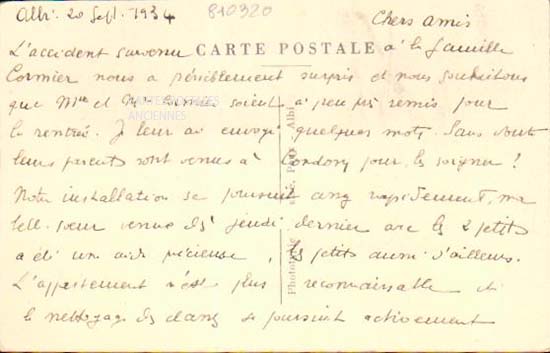 Albi. 20 Sept. 1934 810320 Chers amis
L'accident survenu CARTE POSTALE à la famille
Cormier nous a péniblement surpris et nous souhaitons
que Mme et Mr Cormier soient à peu près remis pour
CARTES POSTALES
ANCIENNES
la rentrée. Je leur ai envoyé quelques mots. Sans doute
leurs parents sont venus à pour les soigner ?
Notre installation se poursuit assez rapidement, ma
belle sœur venue dès jeudi dernier avec les 2 petits
a été une aide précieuse, les petits aussi d'ailleurs.
L'appartement n'est plus reconnaissable et
le nettoyage se poursuit activement
Phototypie Poux, Albi